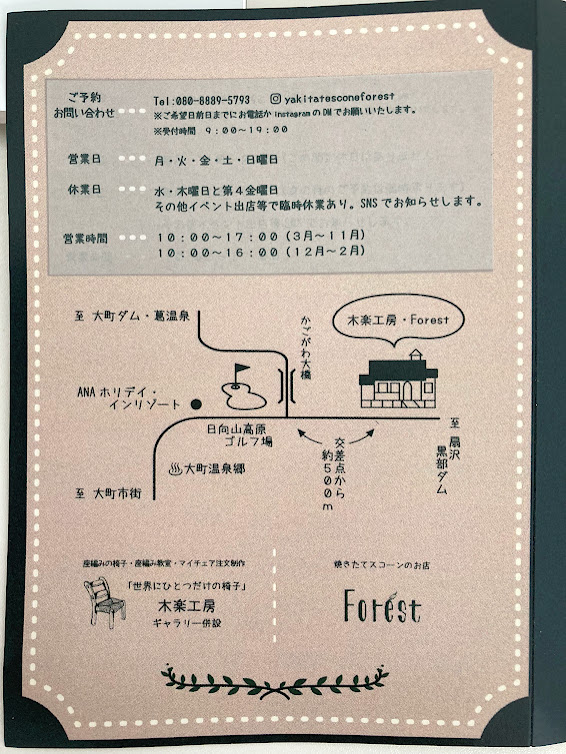 ご予約
お問い合わせ
Tel:080-8889-5793 yakitatesconeforest
※ご希望日前日までにお電話か instagramのDMでお願いいたします。
※受付時間 9:00～19:00
営業日 月・火・金・土・日曜日
休業日 水・木曜日と第4金曜日
その他イベント出店等で臨時休業あり。SNSでお知らせします。
営業時間 10:00～17:00(3月～11月)
10:00～16:00(12月～2月)
至 大町ダム・葛温泉
かごがわ大橋
木楽工房・Forest
ANAホリデイ・
インリゾート
日向山高原
ゴルフ場
至 扇沢
黒部ダム
交差点から
約500m
大町温泉郷
至 大町市街
座編みの椅子・座編み教室・マイチェア注文制作
「世界にひとつだけの椅子」
木楽工房
ギャラリー併設
焼きたてスコーンのお店
Forest